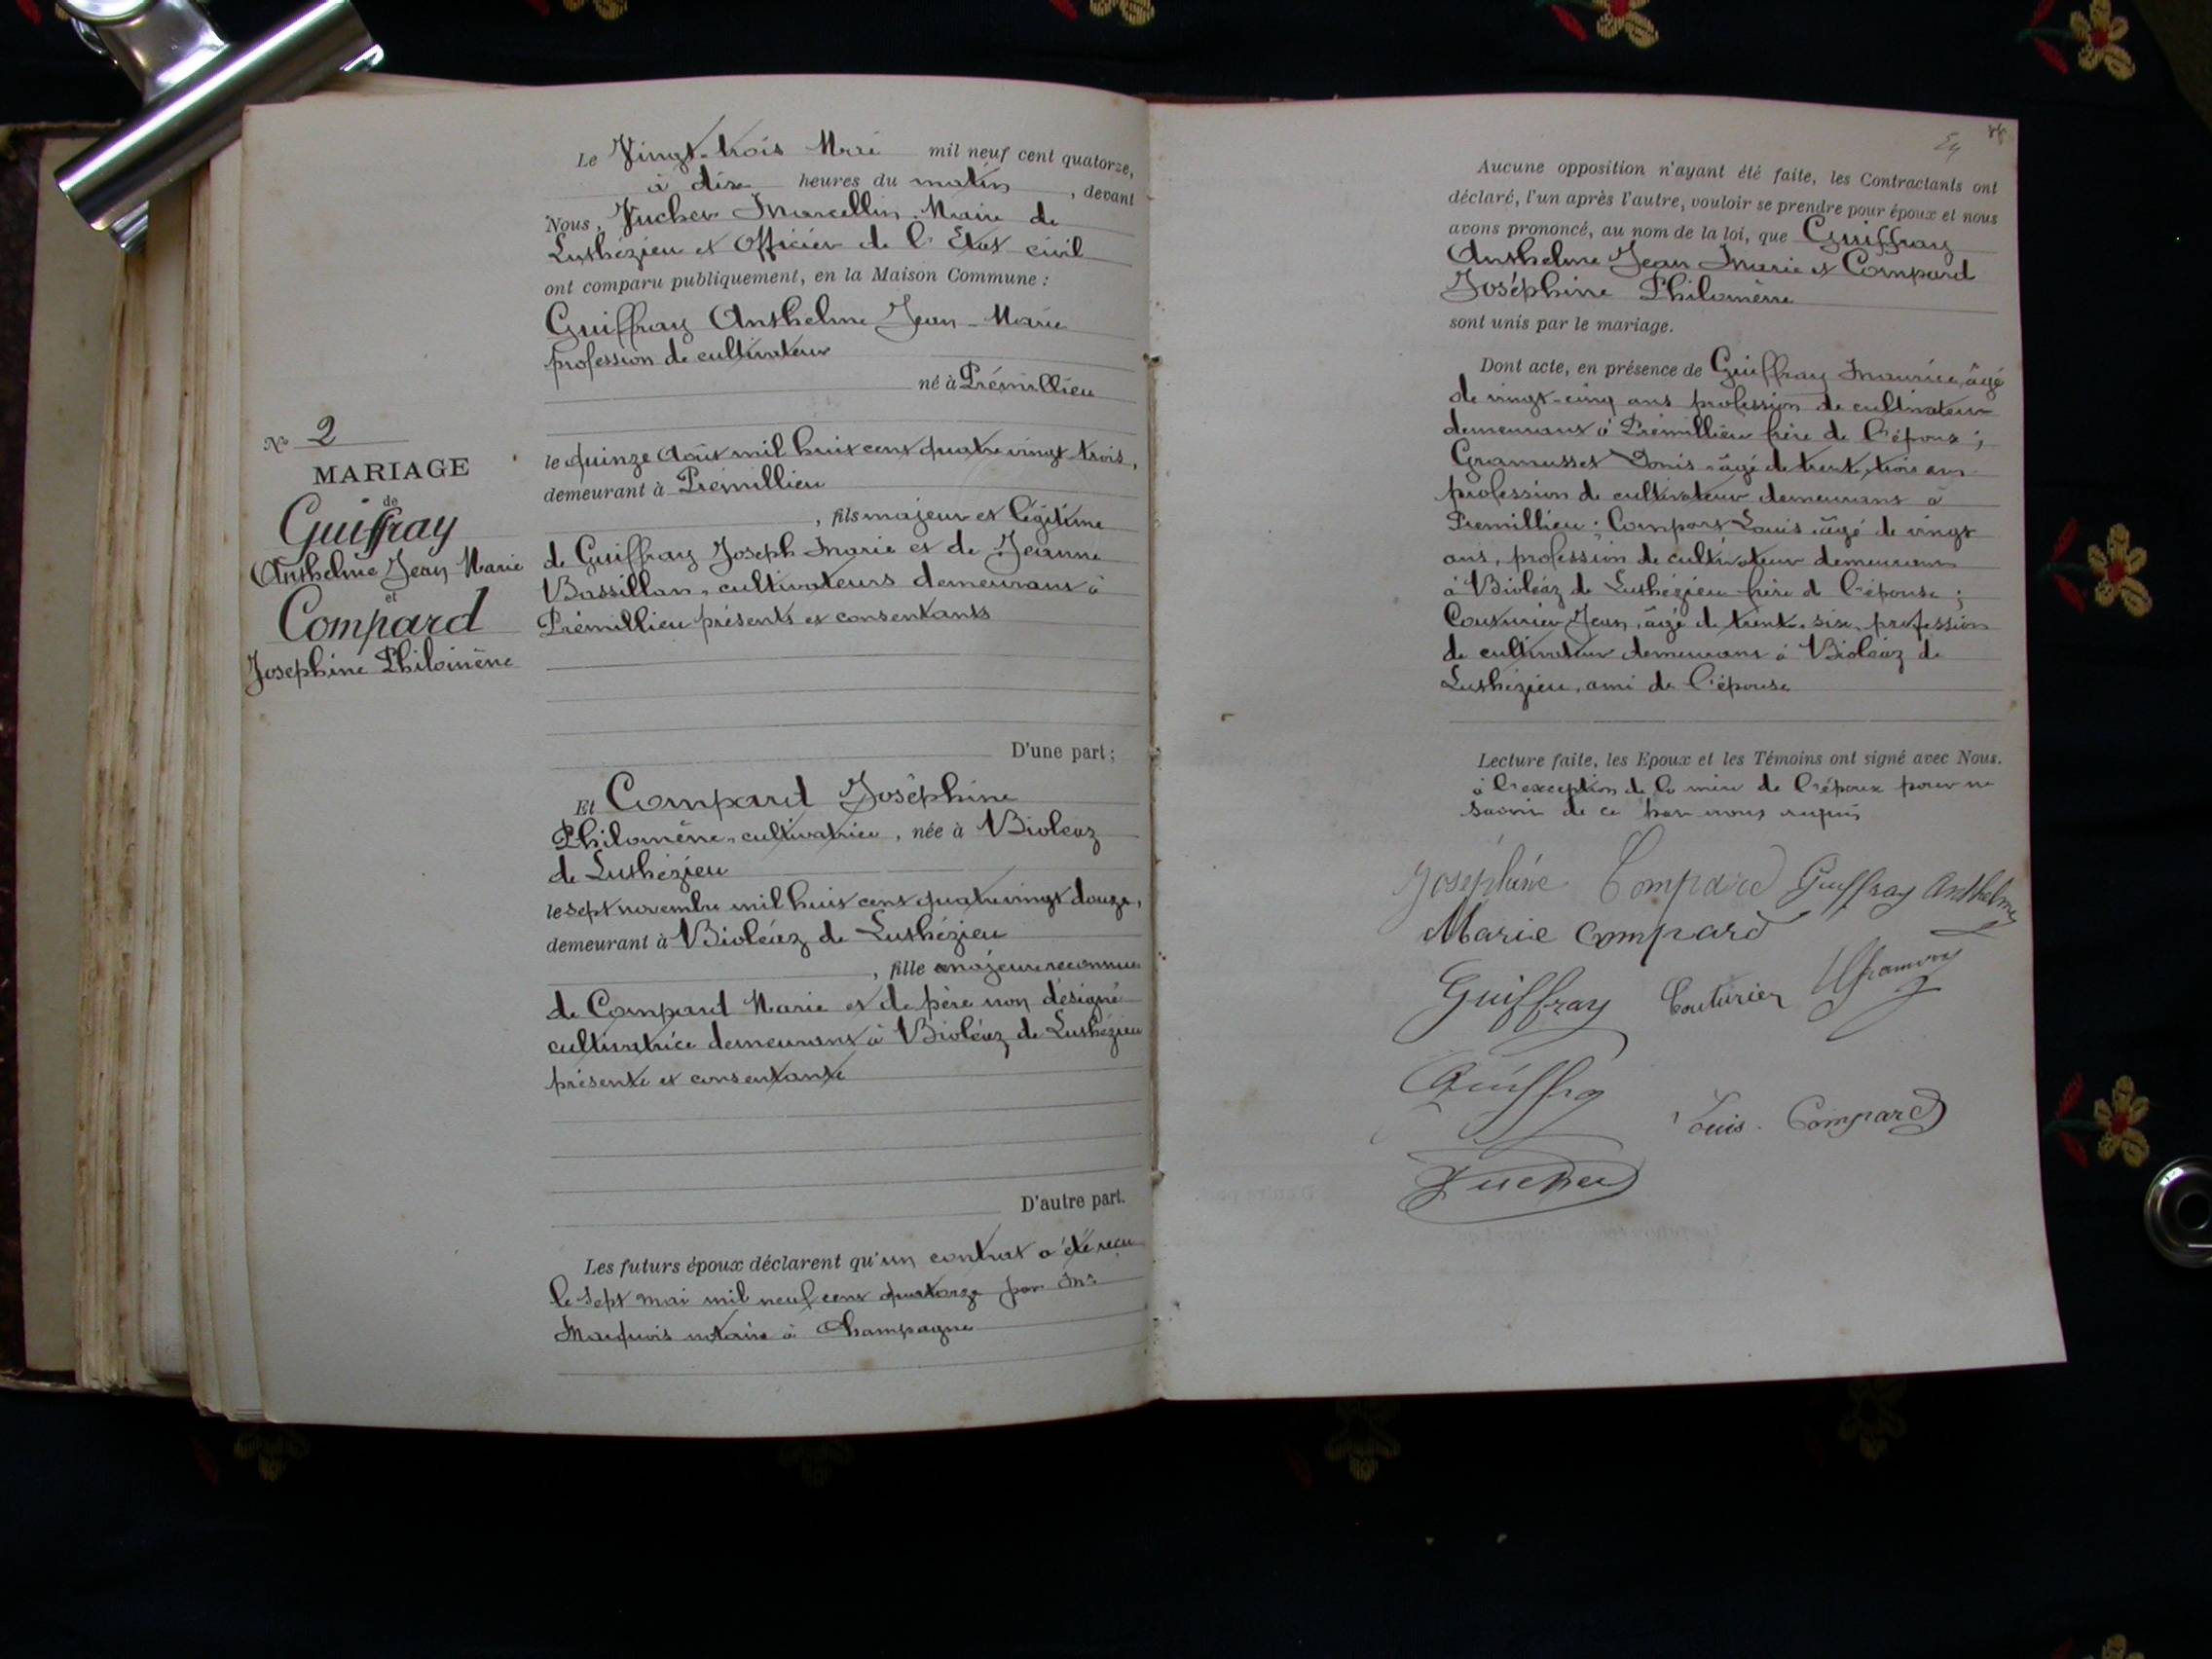 Le Vingt-trois Mai mil neuf cent quatorze,
à dix heures du matin, devant
Nous, Jucher Marcellin Maire de
Luthézieu et Officier de l'Etat civil
ont comparu publiquement, en la Maison Commune :
Guiffray Anthelme Jean-Marie
profession de cultivateur
né à Prémillieu
N° 2
MARIAGE
de
Guiffray
Anthelme Jean Marie
et
Compard
Josephine Philomène
le quinze Août mil huit cent quatre vingt trois,
demeurant à Prémillieu
, fils majeur et légitime
de Guiffray Joseph Marie et de Jeanne
Bassillan, cultivateurs demeurant à
Prémillieu présents et consentants
D'une part ;
Et Compard Joséphine
Philomène, cultivatrice, née à Bioléaz
de Luthézieu
le sept novembre mil huit cent quatre vingt douze,
demeurant à Bioléaz de Luthézieu
, fille majeure reconnue
de Compard Marie et de père non désigné
cultivatrice demeurant à Bioléaz de Luthézieu
présente et consentante
D'autre part.
Les futurs époux déclarent qu'un contrat a été reçu
le sept mai mil neuf cent quatorze par Me
Marquis notaire à Champagne
Aucune opposition n'ayant été faite, les Contractants ont
déclaré, l'un après l'autre, vouloir se prendre pour époux et nous
avons prononcé, au nom de la loi, que Guiffray
Anthelme Jean Marie et Compard
Joséphine Philomène
sont unis par le mariage.
Dont acte, en présence de Guiffray Maurice, âgé
de vingt-cinq ans profession de cultivateur
demeurant à Prémillieu frère de l'époux ;
Gramusset Donis âgé de trente trois ans
profession de cultivateur demeurant à
Prémillieu ; Compart Louis âgé de vingt
ans, profession de cultivateur demeurant
à Bioléaz de Luthézieu frère de l'épouse ;
Couturier Jean, âgé de trente-six, profession
de cultivateur demeurant à Bioléaz de
Luthézieu, ami de l'épouse
Lecture faite, les Epoux et les Témoins ont signé avec Nous.
à l'exception de la mère de l'époux pour ne
savoir de ce par nous requis
Joséphine Compard Guiffray Anthelme
Marie Compard
Guiffray Couturier
Guiffray
Louis Compard
Jucher